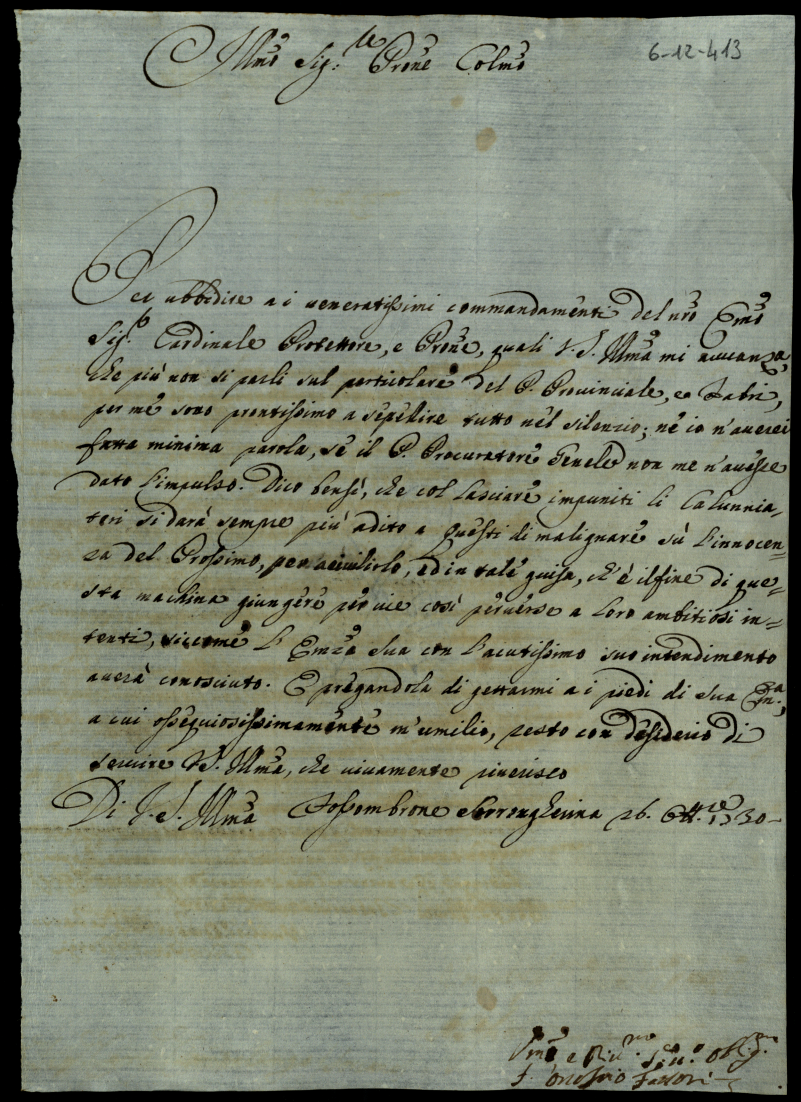 6-12-413
Illmo Sig.re Prone Colmo
Per ubbidire a i veneratissimi commandamenti del nro Emo
Sig.r Cardinale Protettore, e Prone, quali V.S. Illma mi avvanza,
che più non si parli sul particolare del P. Provinciale, e Fabri,
per me sono prontissimo a sepelire tutto nel silenzio; ne io n'averei
fatta minima parola, se il P. Procuratore Genele non me n'avesse
dato l'impulso. Dico bensì, che col lasciare impuniti li Calunnia-
tori si darà sempre più adito a questi di malignare sù l'innocen-
za del Prossimo, per avvilirlo, ed in tale guisa, ch'è il fine di que-
sta machina giungere per vie così perverse a loro ambitiosi in-
tenti, siccome l'Emza Sua con l'acutissimo suo intendimento
averà conosciuto. E pregandola di gettarmi a i piedi di Sua Em.a,
a cui ossequiosissimamente m'umilio, resto con desiderio di
servire V.S. Illma, che vivamente riverisco
Di V.S. Illma Fossombrone 26. Ott.re 1730
F.